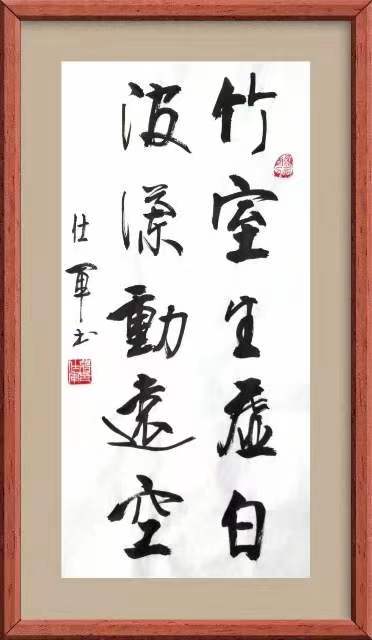 竹室生虛白
波瀾動遠空
仕軍书